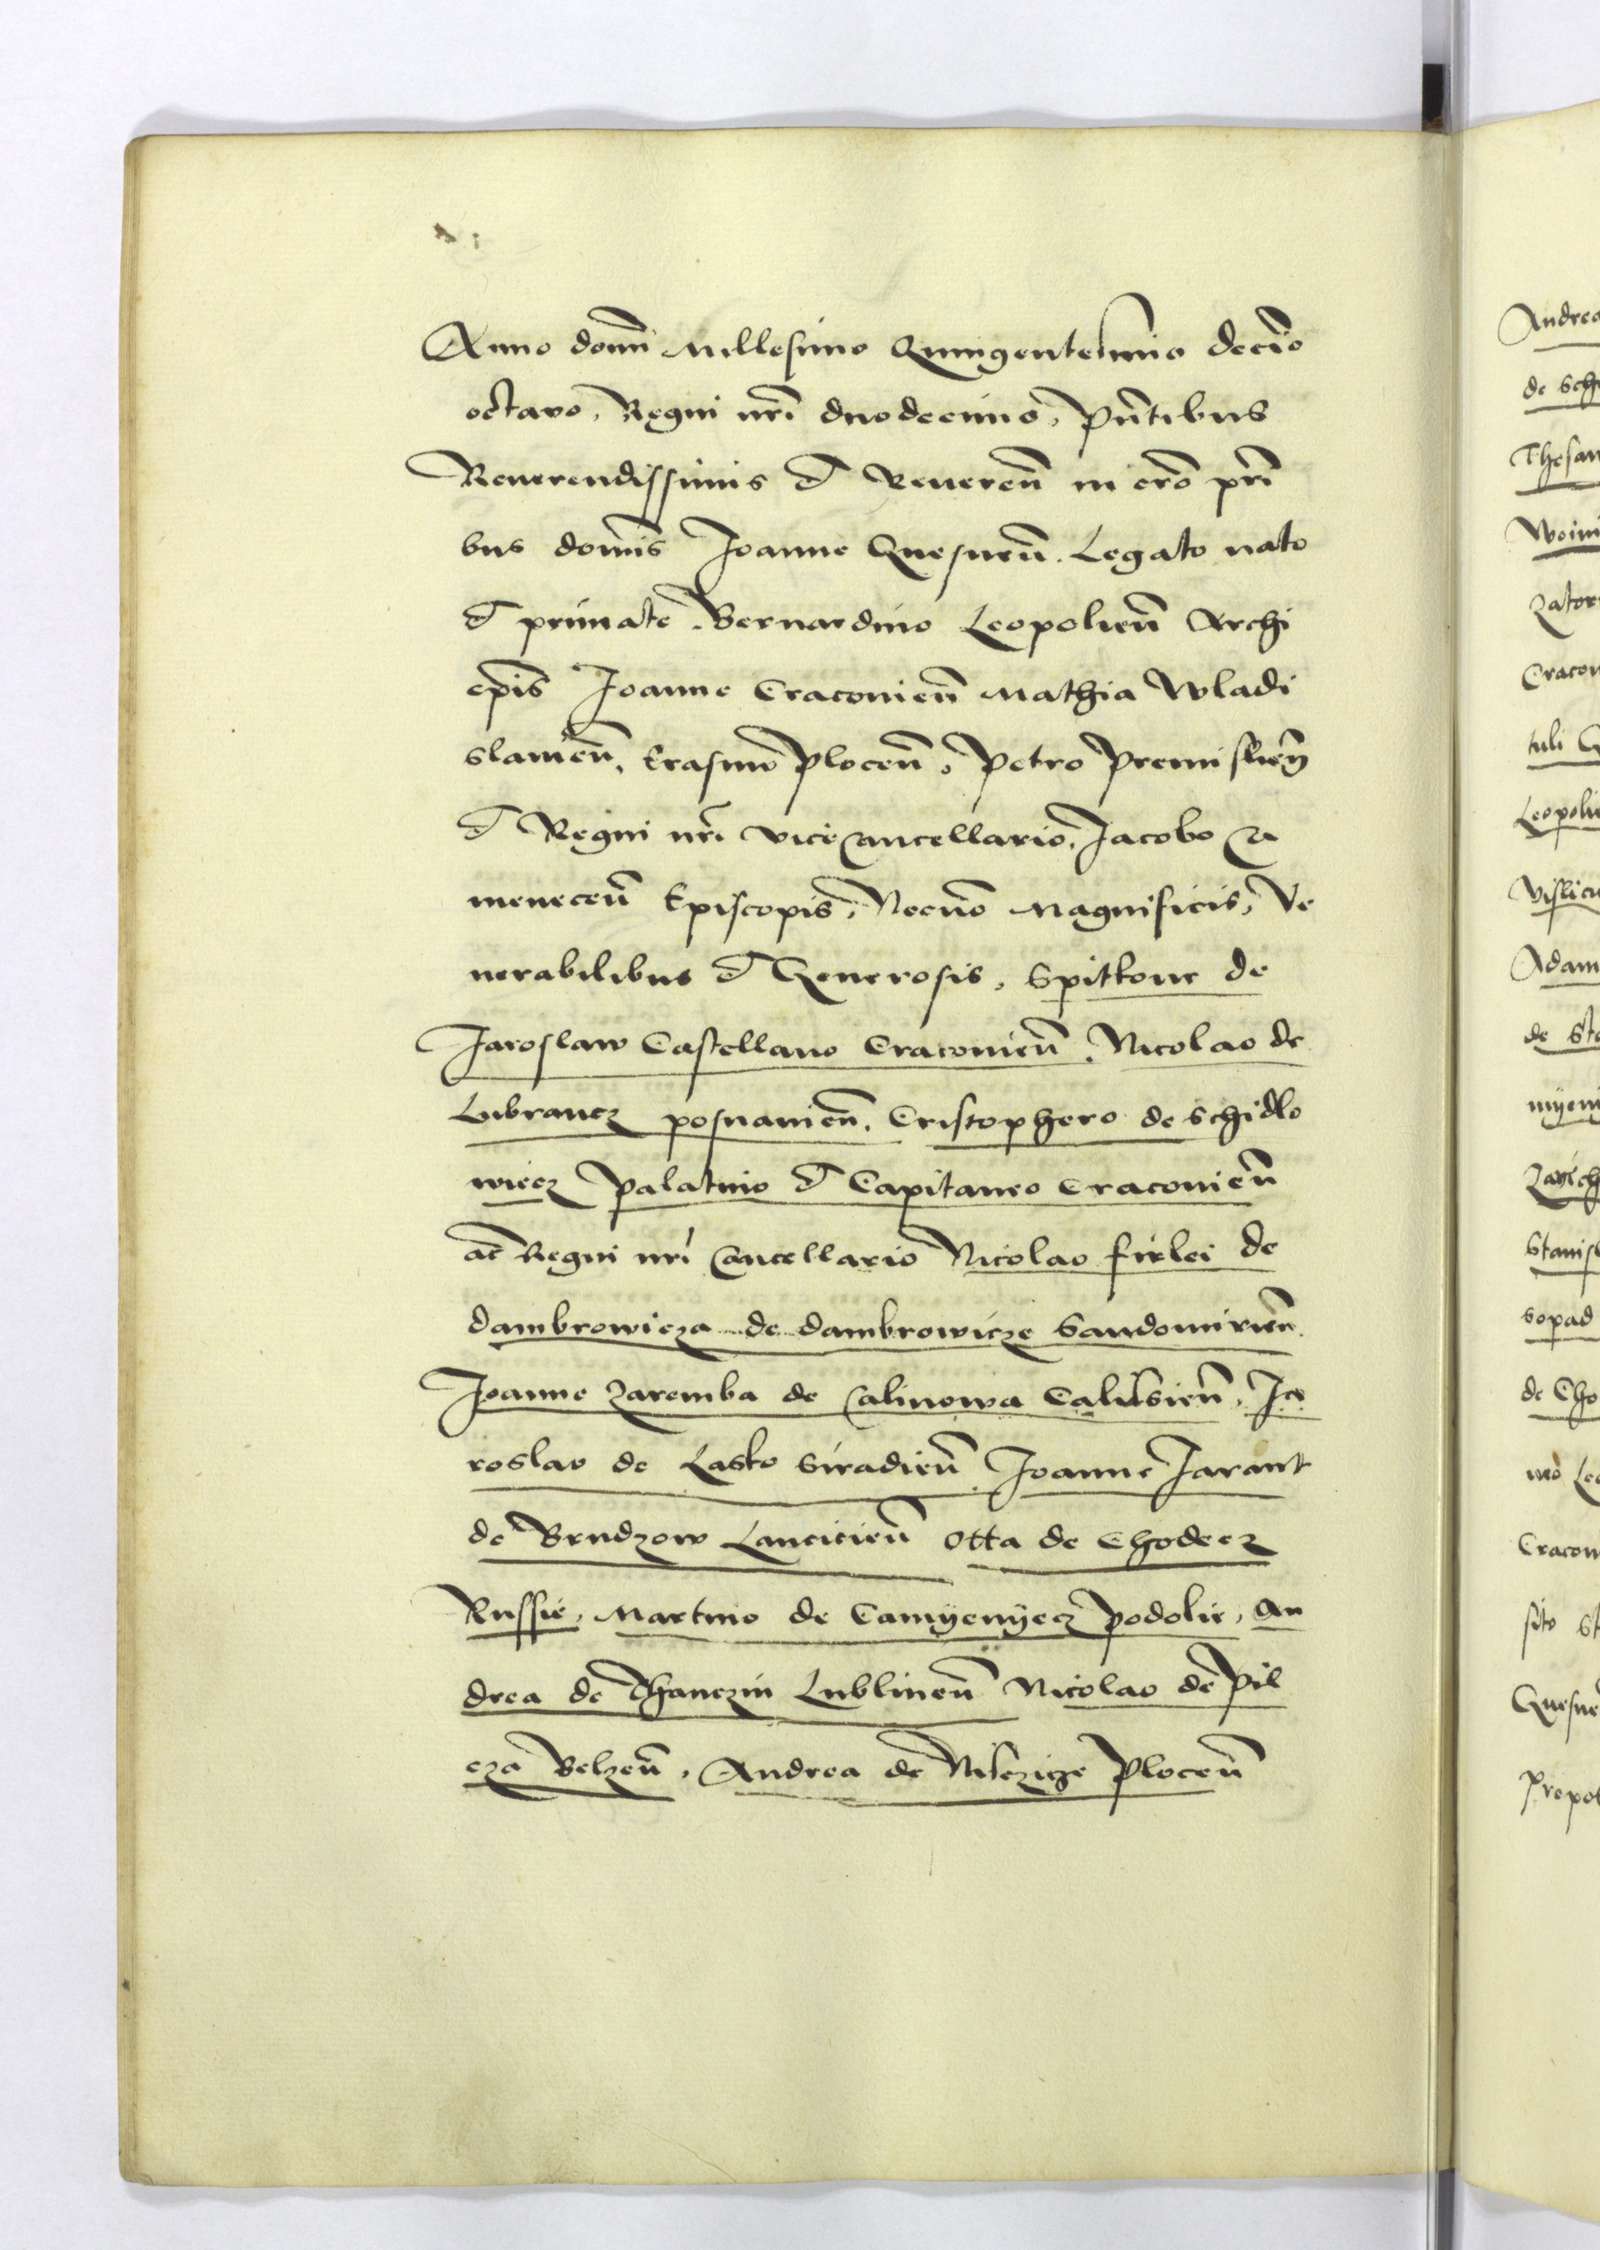 Anno domi Millesimo Quingentesimo decio
octavo, Regni nri duodecimo, pntibus
Reuerendissimis et Reueren in cro pri
bus domis Joanne Gnesnen Legato nato
et primate Bernardino Leopolien Archi
epis Joanne Cracouien Mathia Wladi
slauien, Erasmo Plocen, Petro Premislien
et Regni nri vicecancellario, Jacobo Ca
menecen Episcopis, Necno Magnificis, Ve
nerabilibus et Generosis, Spitkone de
Jaroslaw Castellano Cracouien, Nicolao de
Lubrancz posnanien, Cristophero de Schidlo
wiecz Palatino et Capitaneo Cracouien
ac Regni nri Cancellario Nicolao firlei de
dambrowicza de dambrowicze Sandomirien
Joanne Zaremba de Calinowa Calissien, Ja
roslao de Lasko Siradien Joanne Jarant
de Brudzow Lancicien Otta de Chodecz
Russie, Martino de Camyenyecz podolie, An
drea de Thanczin Lublinen Nicolao de Pil
cza Belzen, Andrea de Nisczicze Plocen
Andrea
de Sch
Thesau
Woini
Zator
Cracou
tuli G
Leopoli
Vislicz
Adam
de St
myeny
Zavich
Stanisl
Sopad
de Cho
Leo
Cracou
sito St
Gnesne
Prepo